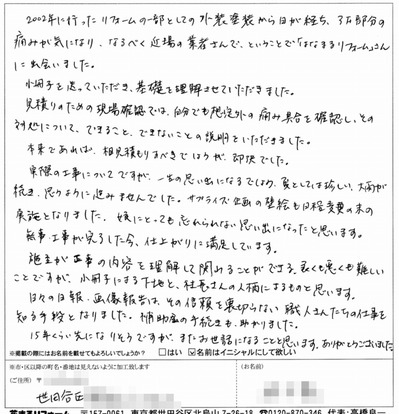 2002年に行ったリフォームの一部としての外装塗装から日が経ち、予想部分の
痛みが気になり、なるべく近場の業者さんで、ということで「はなまるリフォーム」さん
に出会いました。
小冊子を送っていただき、基礎を理解させていただきました。
見積りのための現場確認では、自分でも想定外の痛み具合を確認し、その
対処について、できること、できないことの説明をいただきました。
本来であれば、相見積もりすべきでしょうが、即決でした。
実際の工事についてですが、一生の思い出になるでしょう、夏としては珍しい、大雨が
続き、思うように進みませんでした。サプライズ企画の壁絵も日程変更の末の
実施となりました。娘にとっても忘れられない思い出になったと思います。
無事工事が完了した今、仕上がりに満足しています。
施主が工事の内容を理解して関わることができる、良くも悪くも難しい
ことですが、小冊子による下地と、社長さんの人柄によるものと思います。
日々の日報・画像報告は、その信頼を裏切らない職人さんたちの仕事を
知る手段となりました。補助金の手続きも、助かりました。
15年くらい先になりそうですが、またお世話になることと思います。ありがとうございました
※掲載の際にはお名前を載せてもよろしいでしょうか？ □はい ☑名前はイニシャルにして欲しい
※市・区以降の町名・番地は見えないように加工致します
(ご住所) 〒
世田谷区
(お名前)
花まるリフォーム 〒157-0061 東京都世田谷区北烏山7-26-18 ☎0120-870-346 代表:高橋良一